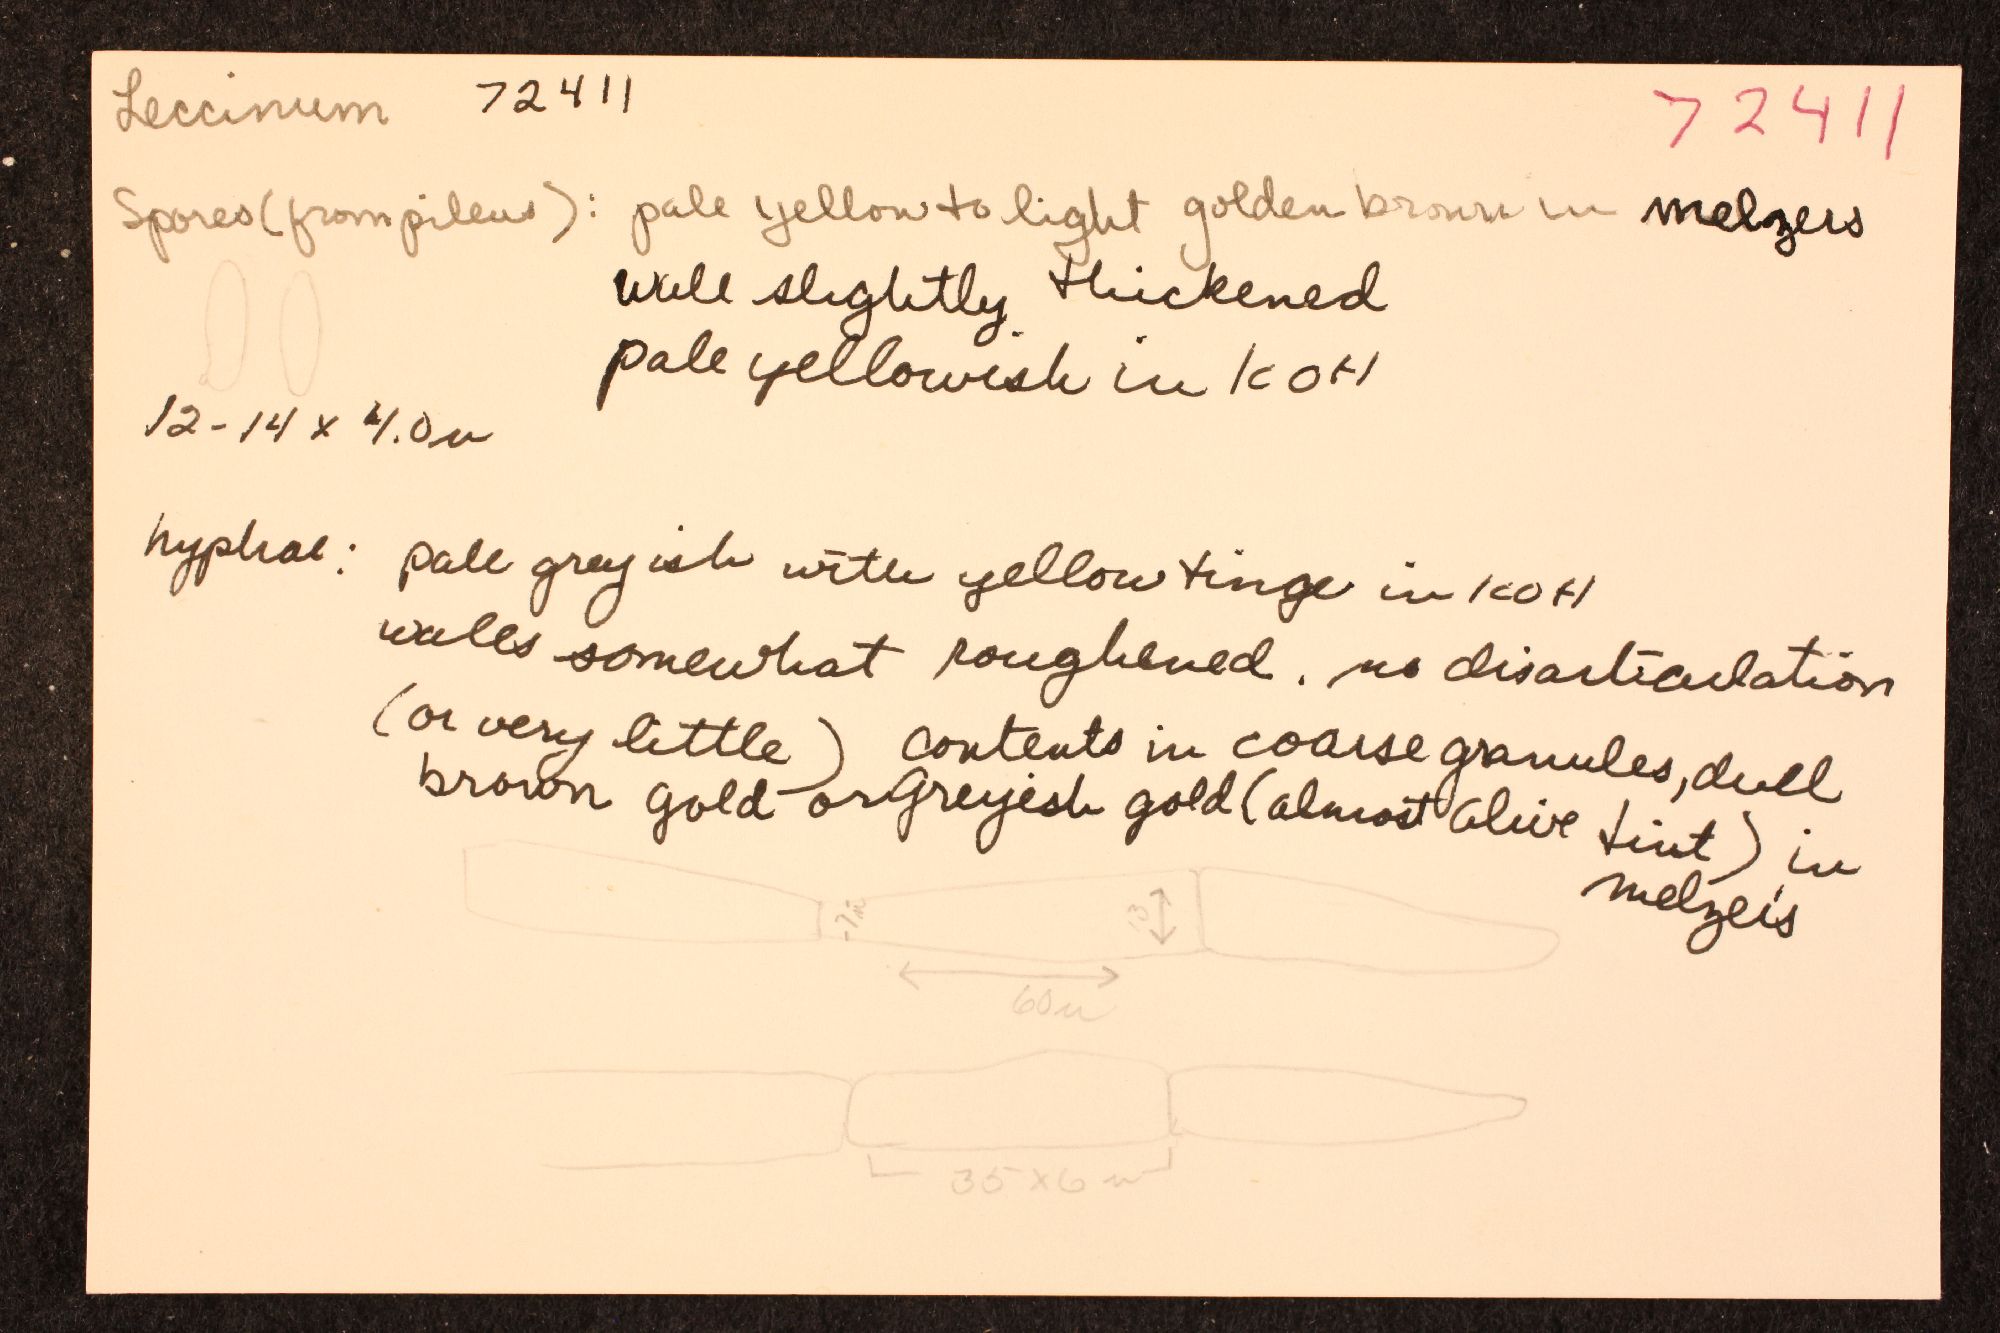 Leccinum 72411 72411
Spores (from pileus): pale yellow to light golden brown in melzers
wall slightly thickened
pale yellowish in KOH
12-14 x 4.0u
hyphae: pale greyish with yellow tinge in KOH
walls somewhat roughened. no disarticulation
(or very little) contents in coarse granules, dull
brown gold or greyish gold (almost olive tint) in
melzers
7u 13
60u
35 x 6 u